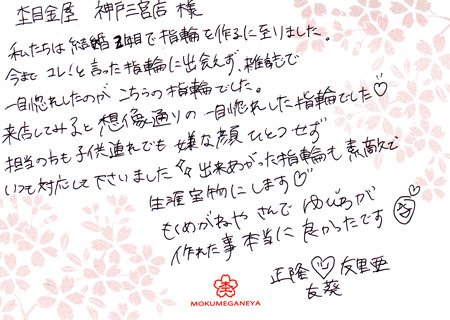 杢目金屋 神戸三宮店 様
私たちは結婚2年目で指輪を作るに至りました。
今までコレ!と言った指輪に出会えず、雑誌で
一目惚れしたのが こちらの指輪でした。
来店してみると想像通りの一目惚れした指輪でした♡
担当の方も子供連れでも嫌な顔ひとつせず
いつも対応して下さいました 出来あがった指輪も素敵で
生涯宝物にします♡
もくめがねや さんで ゆびわが
作れた事本当に良かったです
正隆♡友里亜
友葵
MOKUMEGANEYA